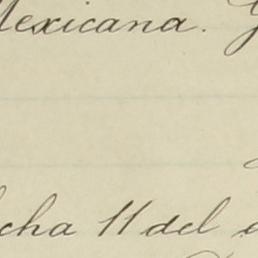 Mexicana.
cha 11 del